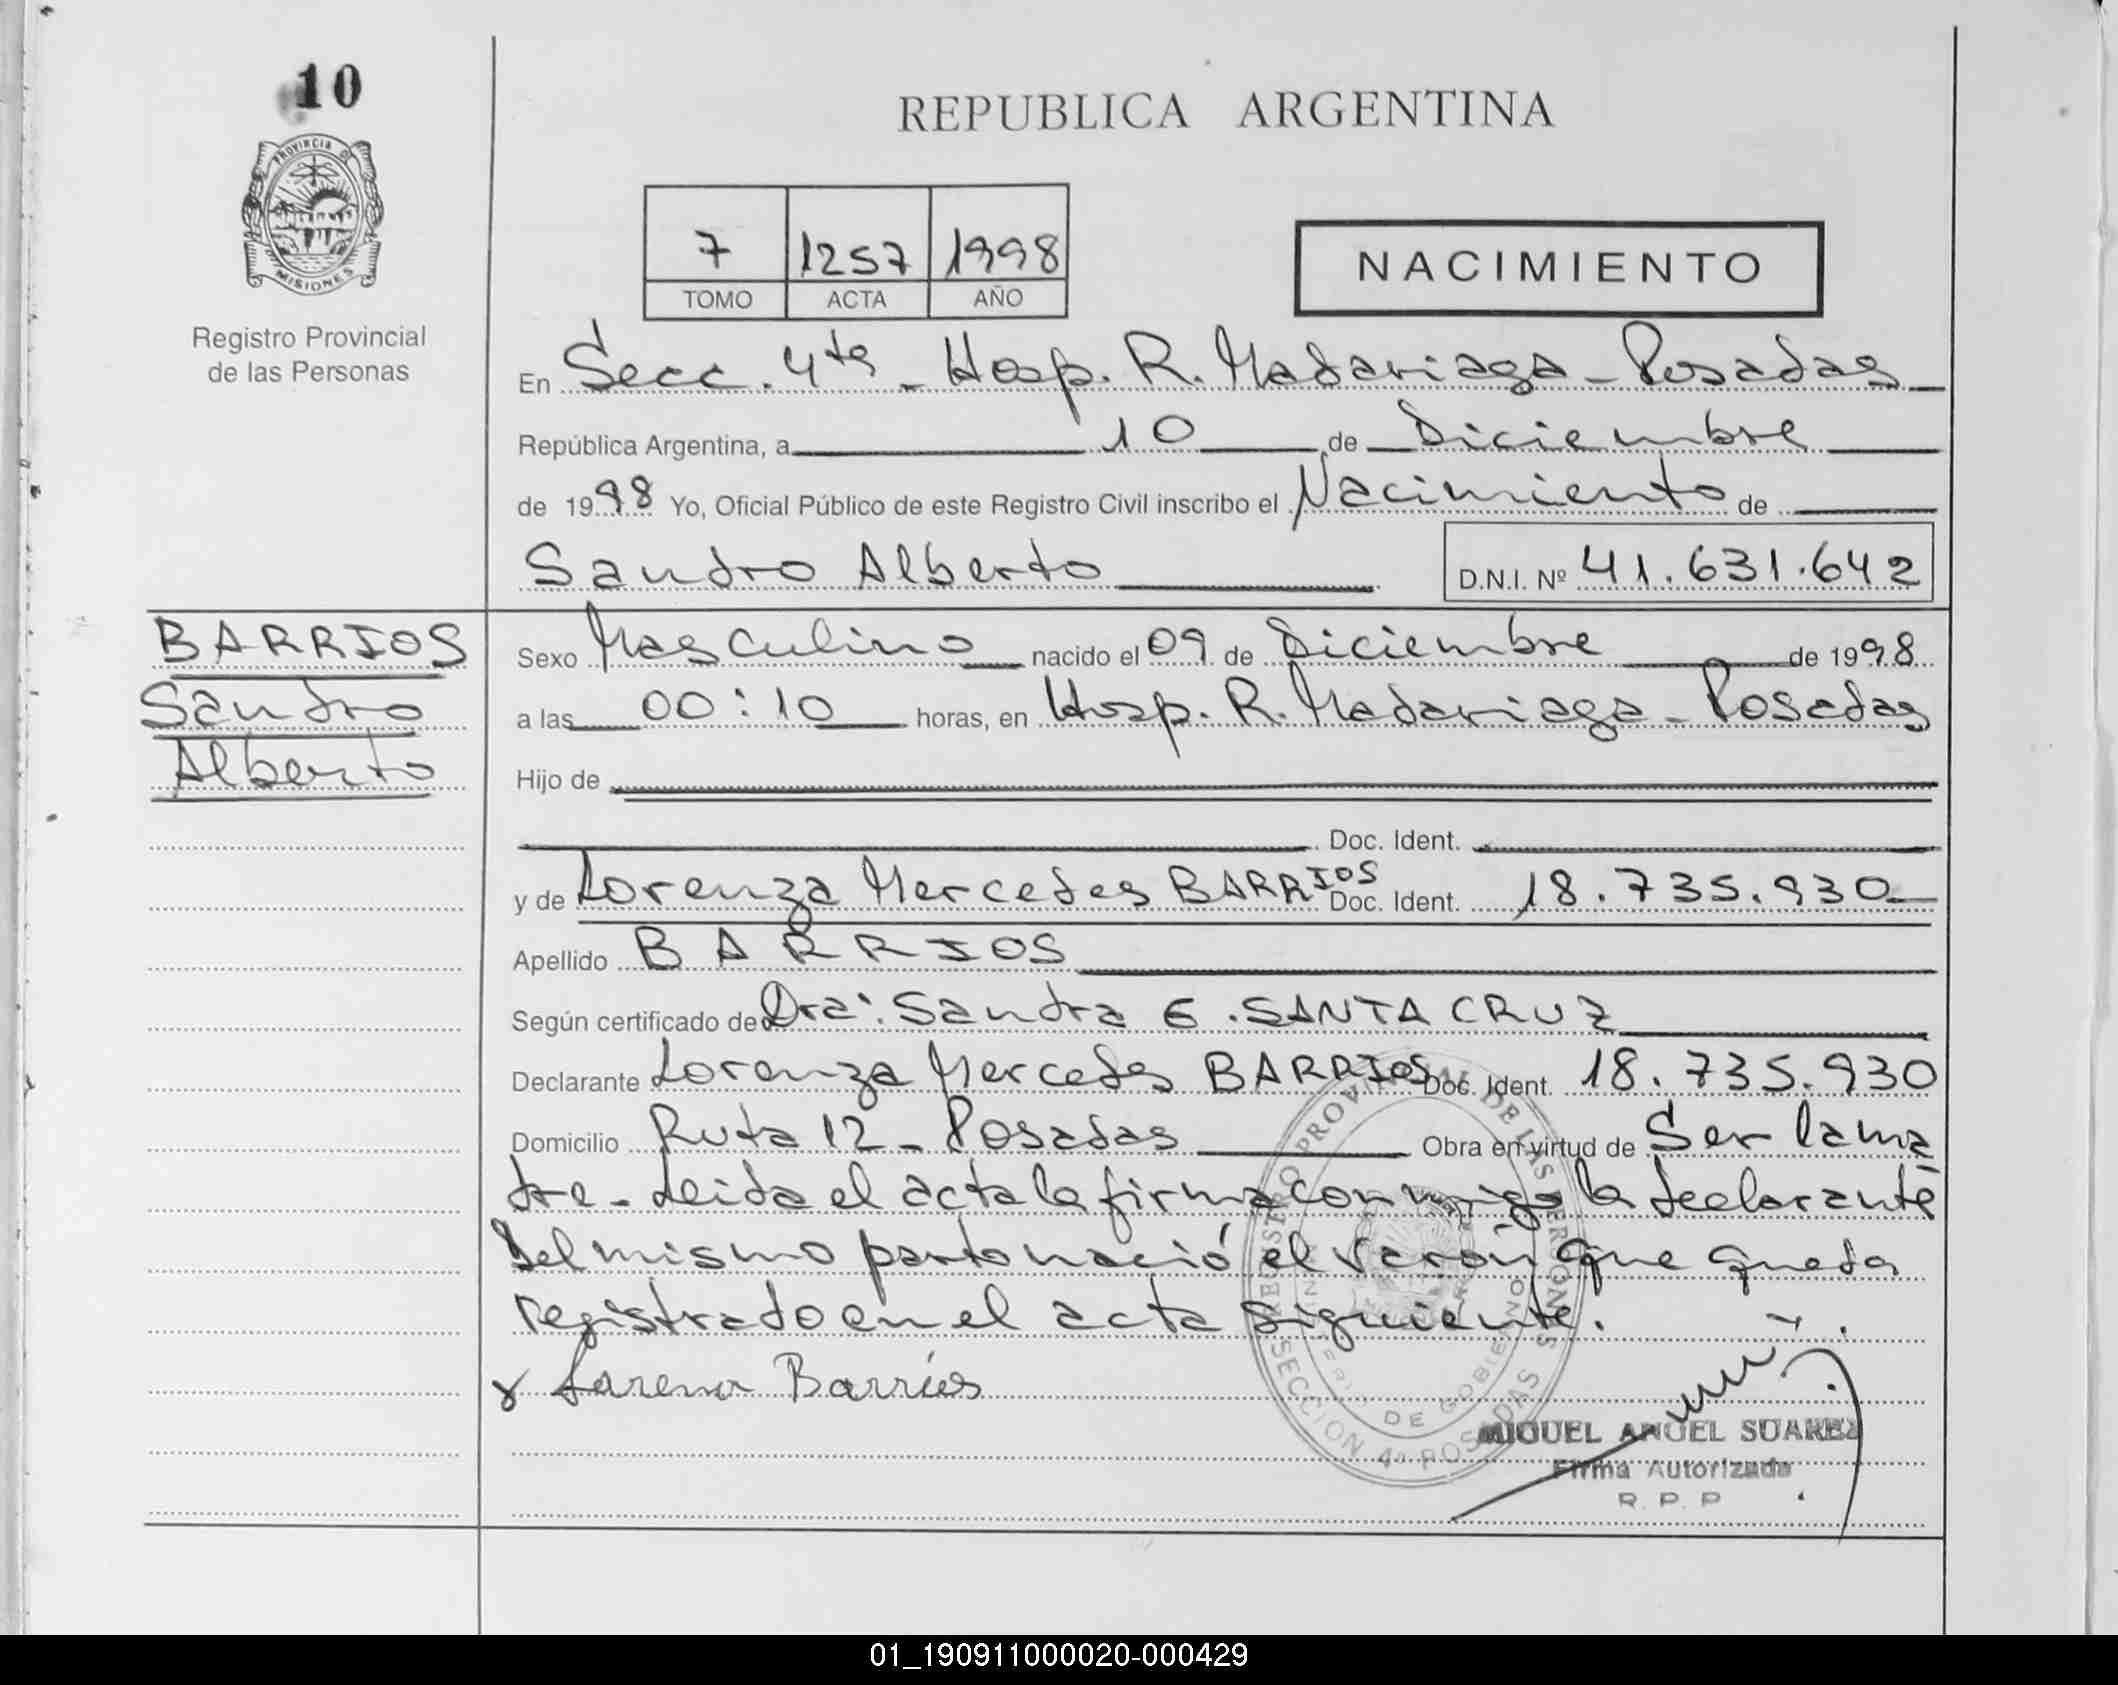 10
PROVINCIA DE
MISIONES
Registro Provincial
de las Personas
REPUBLICA ARGENTINA
7 1257 1998
TOMO ACTA AÑO
NACIMIENTO
En Secc. 4ta - Hosp. R. Madariaga - Posadas
República Argentina, a 10 de Diciembre
de 1998 Yo, Oficial Público de este Registro Civil inscribo el Nacimiento de
Sandro Alberto D.N.I. Nº 41.631.642
BARRIOS
Sandro
Alberto
Sexo Masculino nacido el 09 de Diciembre de 1998
a las 00:10 horas, en Hosp. R. Madariaga - Posadas
Hijo de
Doc. Ident.
y de Lorenza Mercedes BARRIOS Doc. Ident. 18.735.930
Apellido BARRIOS
Según certificado de Dra: Sandra E. SANTA CRUZ
Declarante Lorenza Mercedes BARRIOS Doc. Ident. 18.735.930
Domicilio Ruta 12 - Posadas Obra en virtud de Ser la ma
dre - Leida el acta la firma conmigo la declarante
Del mismo parto nació el varón que queda
registrado en el acta siguiente.
x Larenza Barrios
REGISTRO PROVINCIAL DE LAS PERSONAS
SECCION 4ª POSADAS
DE GOBIERNO
MIGUEL ANGEL SUAREZ
Firma Autorizada
R. P. P
01_190911000020-000429